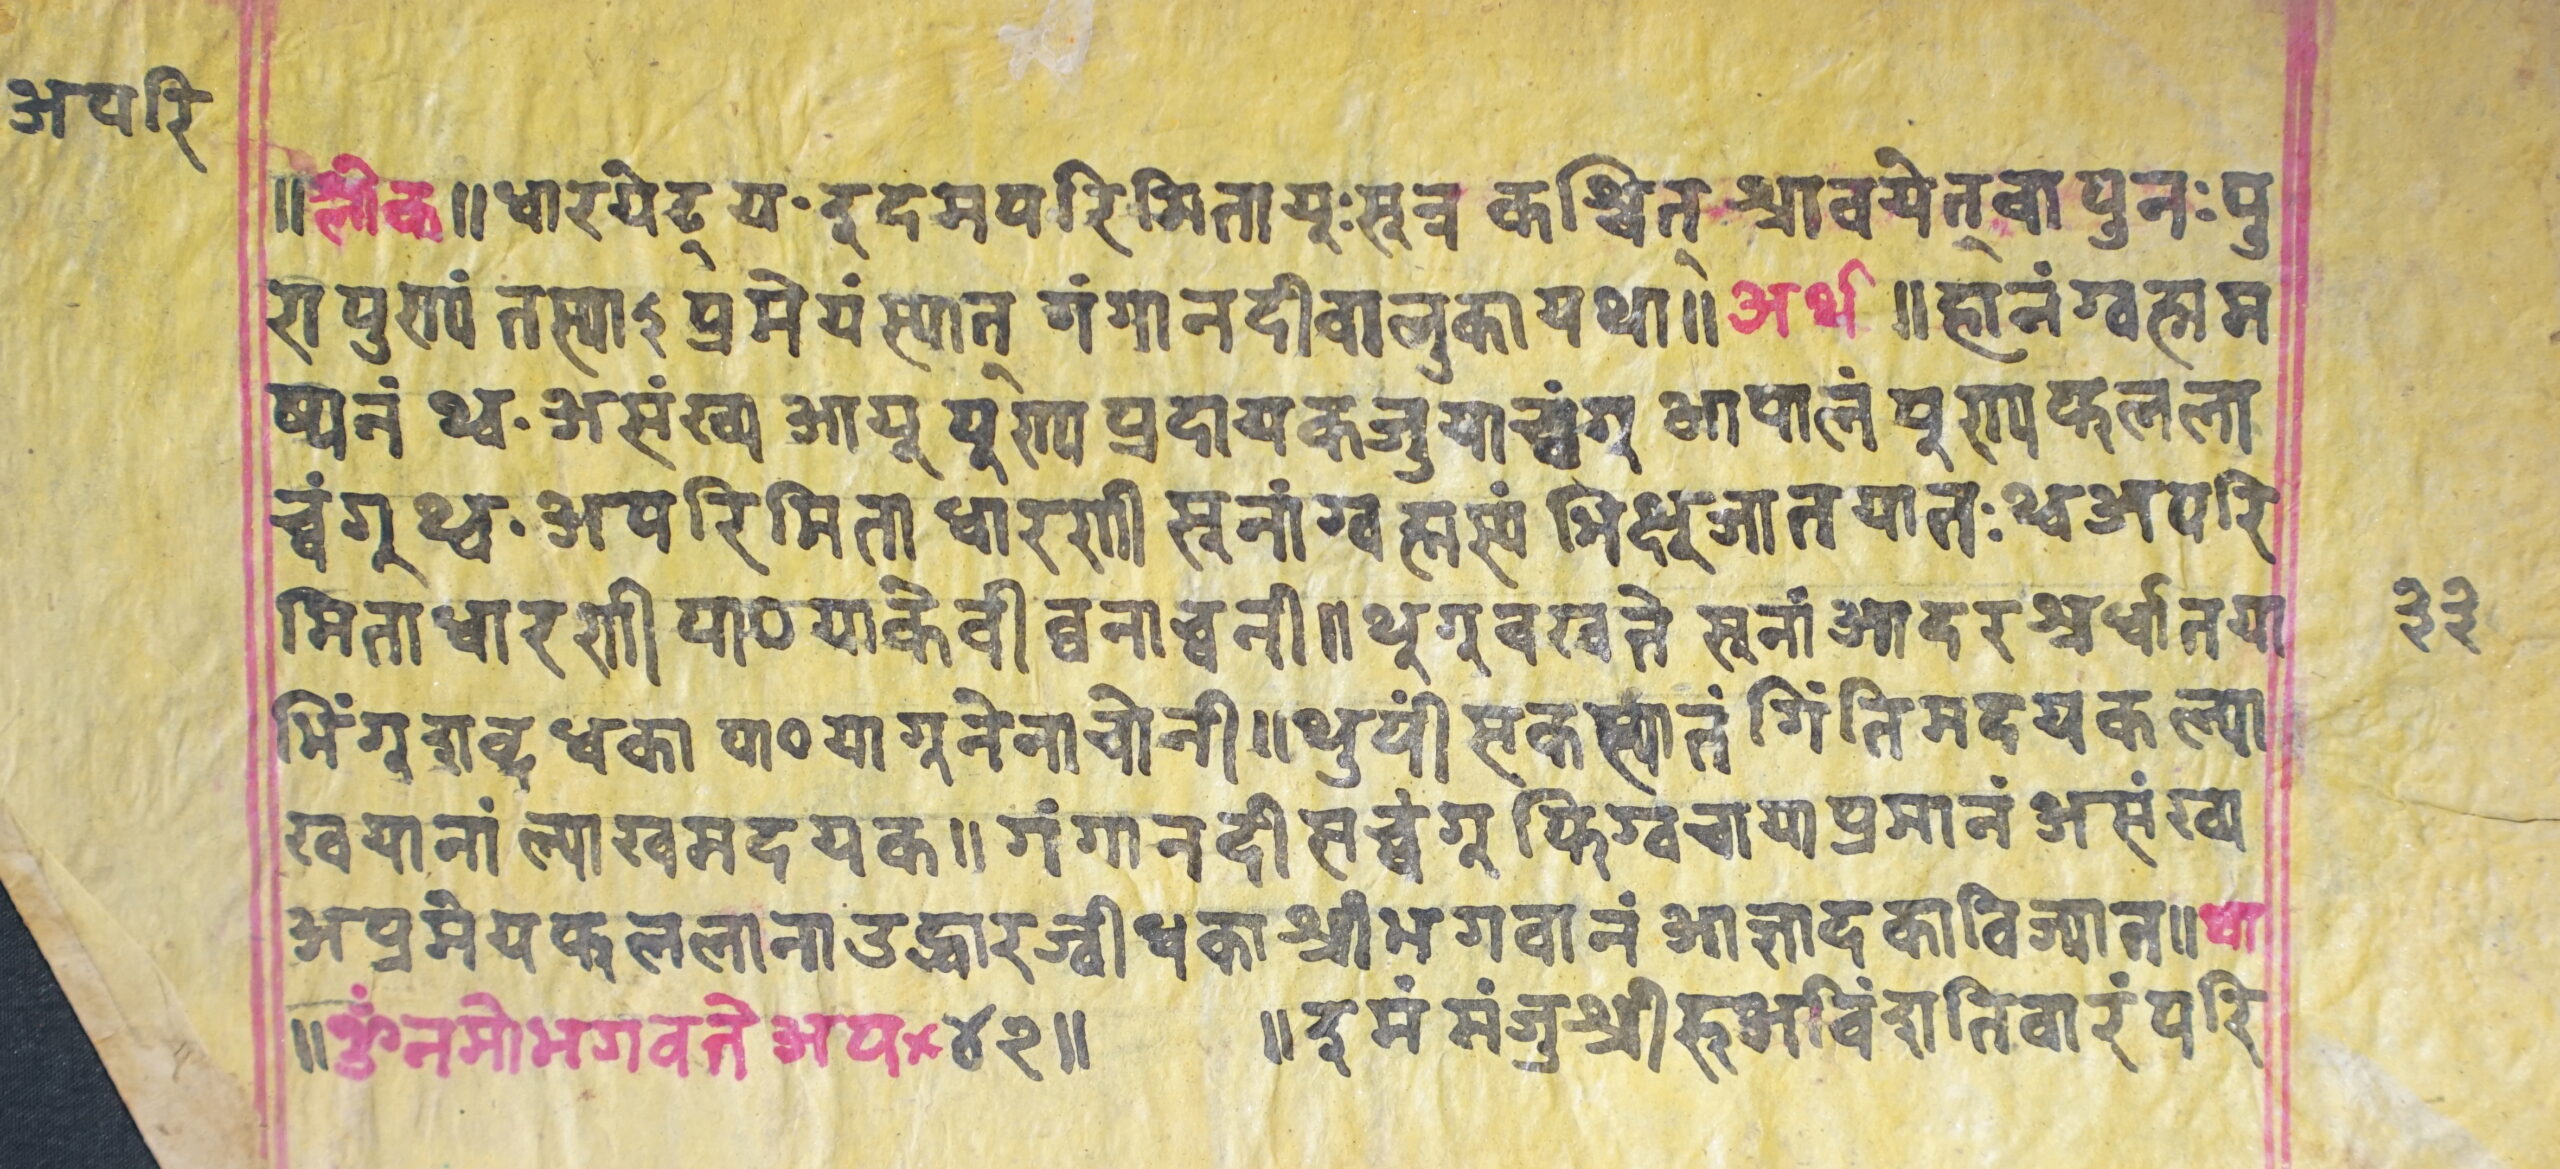 अपरि
॥लोक॥ धारयेद् य· इदमपरिमितायूःसूत्र कश्चित् श्रावयेत् वा पुनः पु
रा पुण्यं तस्याऽ प्रमेयं स्यात् गंगा नदी वालुका यथा॥ अर्थ ॥ हानं ग्वह्म म
ष्यनं थ्व· असंख्य आयू पूण्य प्रदायक जुयाच्वंगू आपालं पूण्य फल ला
च्वंगू थ्व· अपरिमिता धारणी सूनां ग्वह्मस्यं भिक्षूजात यातः थ्व अपरि
मिता धारणी पाठ याके वी व्वनाच्वनी॥ थूगू वखते सूनां आदर श्रर्धा तया
भिंगू शव्द् धका पाठ यागू नेनाचोनी॥ थुपीं सकस्यातं गिंति मदयक ल्या
ख यानां ल्याख मदयक॥ गंगा नदी सच्वंगू फिग्वचाया प्रमानं असंख्य
अप्रमेय फल लाना उद्धार ज्वी धका श्री भगवानं आज्ञा दका विज्यात॥ धा
॥ ॐ नमो भगवते अप× ४२॥ ॥ इमं मंजुश्री रूअविंशति वारं परि
३३